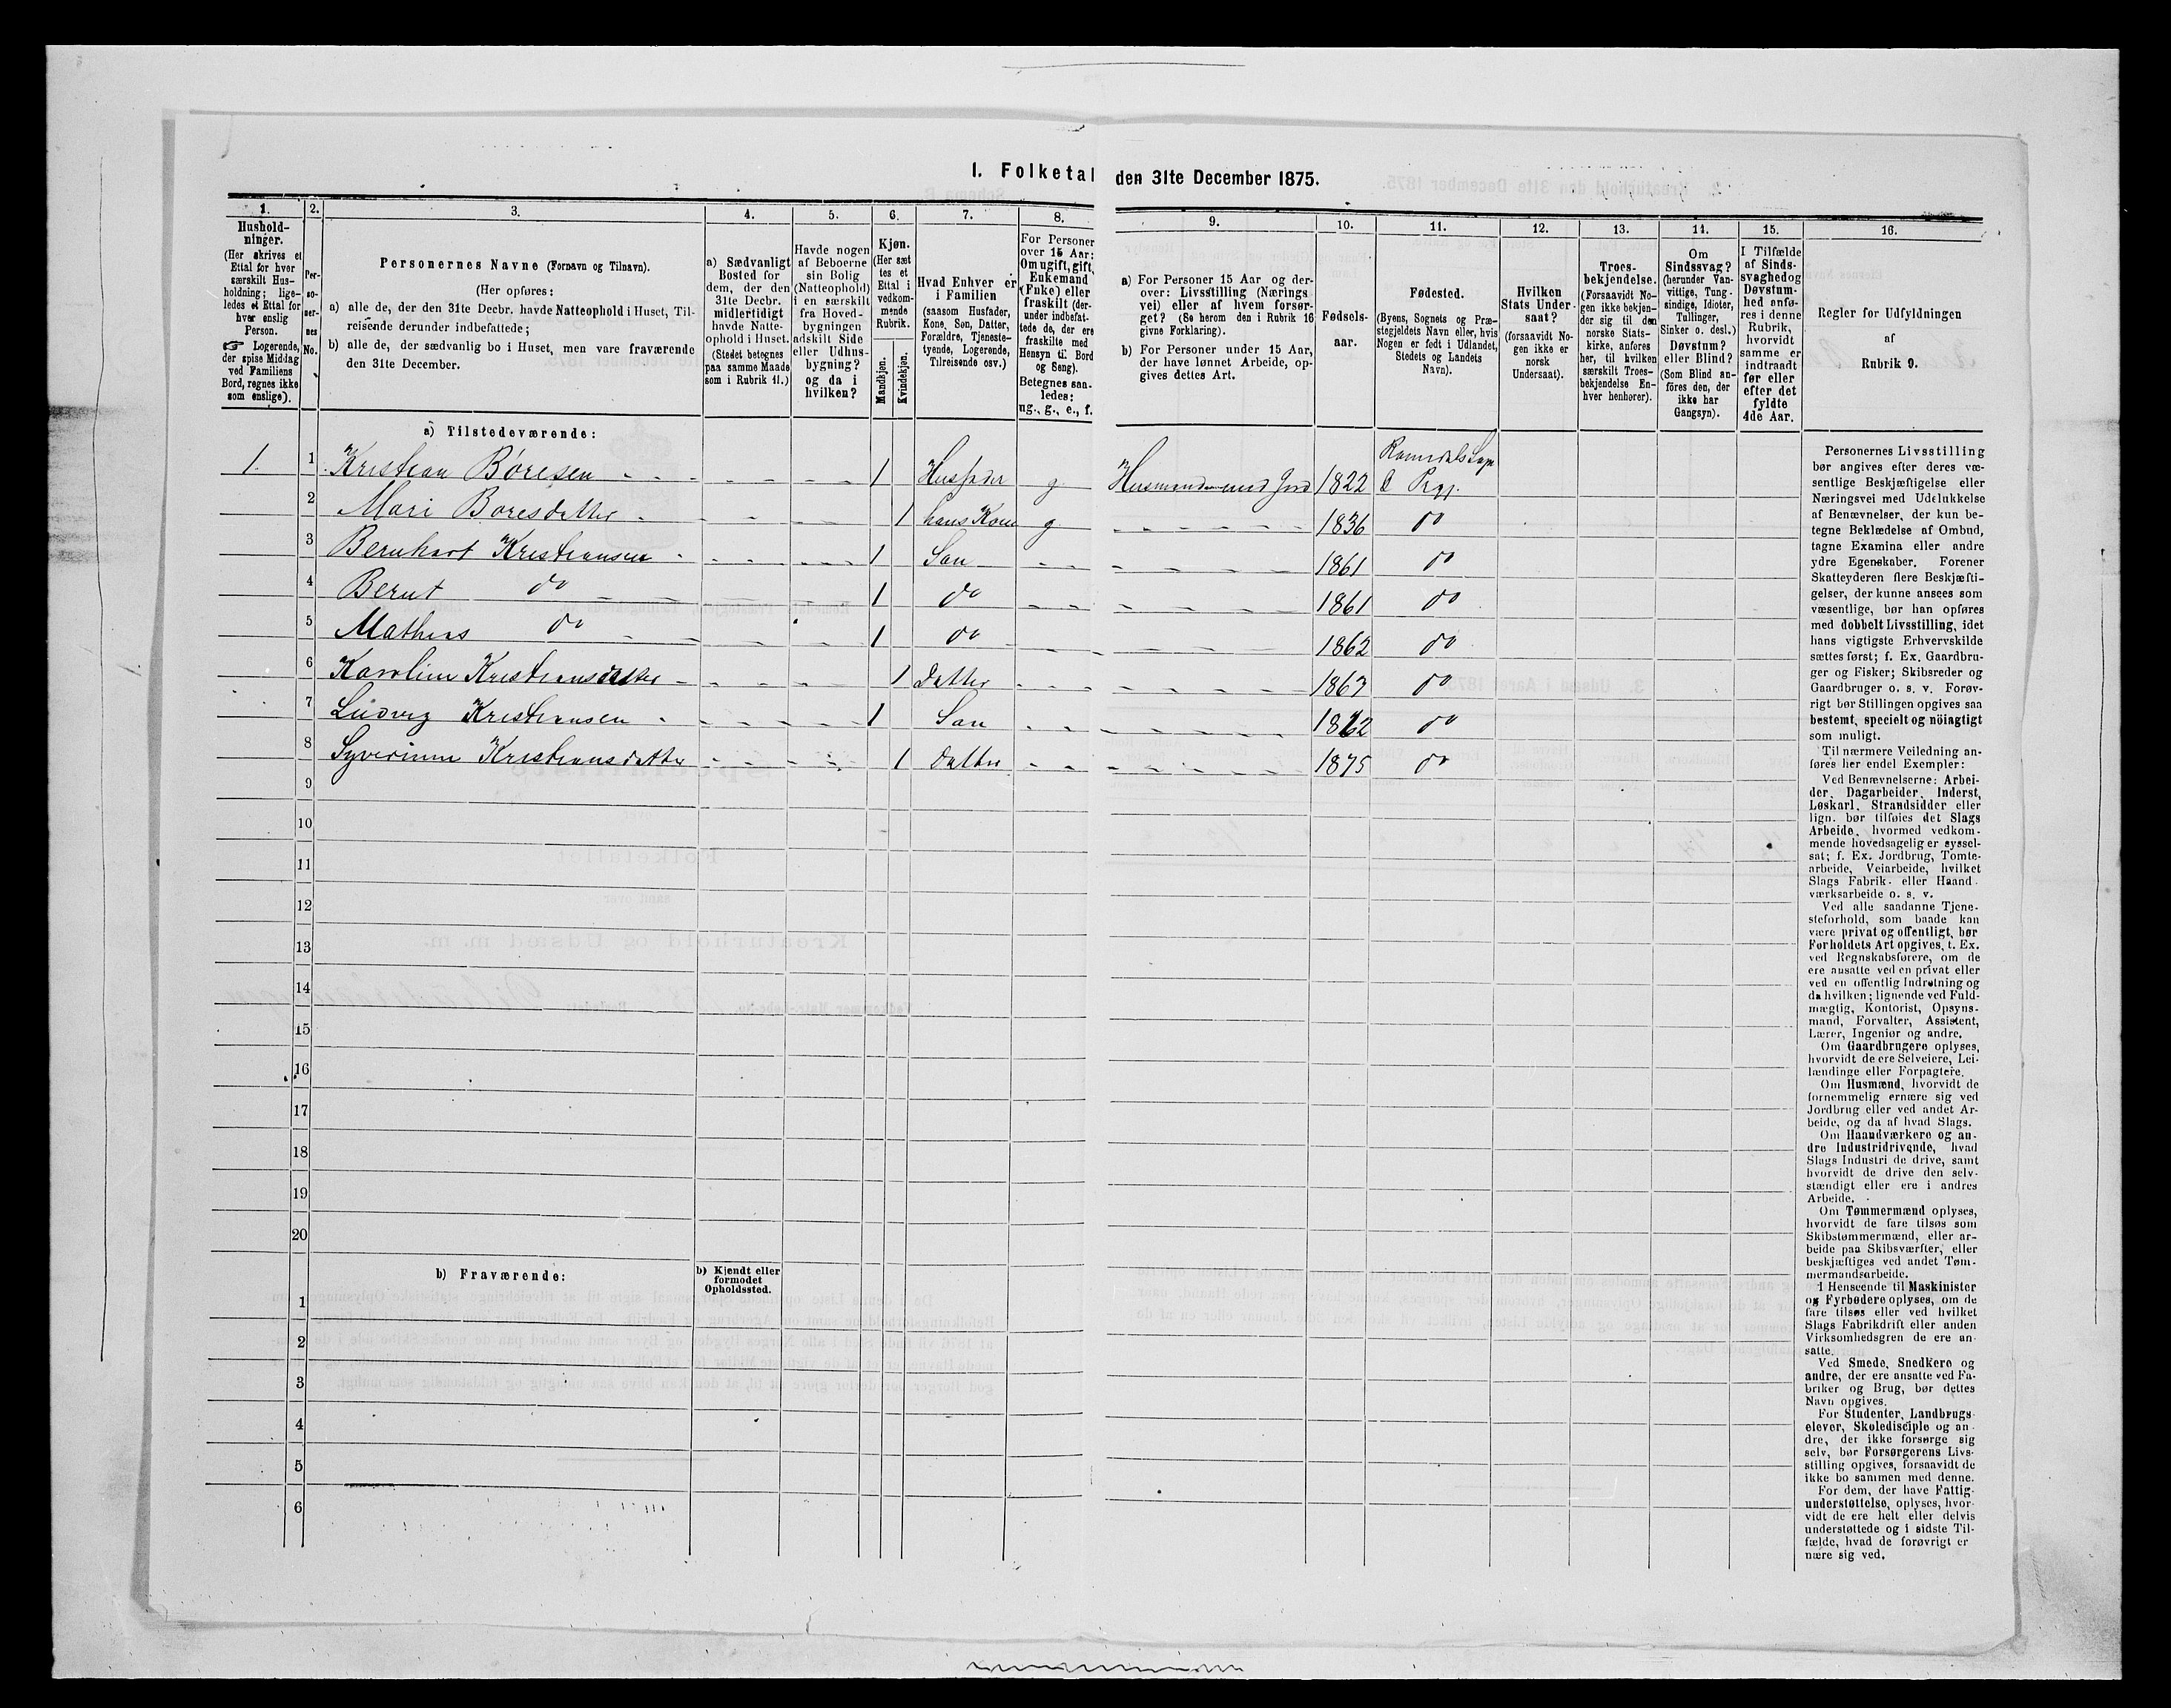 I. Folketal den 31te December 1875.
1.
Hushold-
ninger.
(Her skrives et
Ettal for hver
særskilt Hus-
holdning; lige-
ledes et Ettal for
hver enslig
Person.
☞ Logerende,
der spise Middag
ved Familiens
Bord, regnes ikke
som enslige).
2.
Per-
so-
ner-
nes
No.
3.
Personernes Navne (Fornavn og Tilnavn).
(Her opføres:
a) alle de, der den 31te Decbr. havde Natteophold i Huset, Til-
reisende derunder indbefattede;
b) alle de, der sædvanlig bo i Huset, men vare fraværende
den 31te December.
4.
a) Sædvanligt
Bosted for
dem, der den
31te Decbr.
midlertidigt
havde Natte-
ophold i Huset.
(Stedet betegnes
paa samme Maade
som i Rubrik 11.)
5.
Havde nogen
af Beboerne
sin Bolig
(Natteophold)
i en særskilt
fra Hoved-
bygningen
adskilt Side
eller Udhus-
bygning?
og da i
hvilken?
6.
Kjøn.
(Her sæt
tes et
Ettal i
vedkom-
mende
Rubrik.
Mandkjøn.
Kvindekjøn.
7.
Hvad Enhver er
i Familien
(saasom Husfader,
Kone, Søn, Datter,
Forældre, Tjeneste-
tyende, Logerende,
Tilreisende osv.)
8.
For Personer
over 15 Aar:
Om ugift, gift,
Enkemand
(Enke) eller
fraskilt (der-
under indbefat-
tede de, der ere
fraskilte med
Hensyn til Bord
og Seng).
Betegnes saa-
ledes:
ug., g., e., f.
9.
a) For Personer 15 Aar og der-
over: Livsstilling (Nærings
vei) eller af hvem forsør-
get? (Se herom den i Rubrik 16
givne Forklaring).
b) For Personer under 15 Aar,
der have lønnet Arbeide, op-
gives dettes Art.
10.
Fødsels-
aar.
11.
Fødested.
(Byens, Sognets og Præ-
stegjeldets Navn eller, hvis
Nogen er født i Udlandet,
Stedets og Landets
Navn).
12.
Hvilken
Stats Under-
saat?
(forsaavidt No-
gen ikke er
norsk
Undersaat).
13.
Troes-
bekjendelse.
(Forsaavidt No-
gen ikke bekjen-
der sig til den
norske Stats-
kirke, anføres
her, til hvilken
særskilt Troes-
bekjendelse En-
hver henhører).
14.
Om
Sindssvag?
(herunder Van-
vittige, Tung-
sindige, Idioter,
Tullinger,
Sinker o. desl.)
Døvstum?
eller Blind?
(Som Blind an-
föres den, der
ikke har
Gangsyn).
15.
I Tilfælde
af Sinds-
svaghed og
Døvstum-
hed anfø-
res i denne
Rubrik,
hvorvidt
samme er
indtraadt
før eller
efter det
fyldte
4de Aar.
16.
Regler for Udfyldningen
af
Rubrik 9.
a) Tilstedeværende:
1. 1 Kristian Børesen 1 Husfader g Husmand med Jord 1822 Romedals Sogn & Prgj.
2 Mari Boresdatter 1 hans Kone g 1836 do
3 Bernhart Kristiansen 1 Søn 1861 do
4 Bernt do 1 do 1861 do
5 Mathias do 1 do 1862 do
6 Karoline Kristiansdatter 1 Datter 1867 do
7 Ludvig Kristiansen 1 Søn 1872 do
8 Syverinne Kristiansdatter 1 Datter 1875 do
9
10
11
12
13
14
15
16
17
18
19
20
b) Fraværende:
b) Kjendt eller
formodet
Opholdssted.
1
2
3
4
5
6
Personernes Livsstilling
bør angives efter deres væ-
sentlige Beskjæftigelse eller
Næringsvei med Udelukkelse
af Benævnelser, der kun be-
tegne Beklædelse af Ombud,
tagne Examina eller andre
ydre Egenskaber. Forener
Skatteyderen flere Beskjæfti-
gelser, der kunne ansees som
væsentlige, bør han opføres
med dobbelt Livsstilling, idet
hans vigtigste Erhvervskilde
sættes først; f. Ex. Gaardbru-
ger og Fisker; Skibsreder og
Gaardbruger o. s. v. Forøv-
rigt bør Stillingen opgives saa
bestemt, specielt og nöiagtigt
som muligt.
Til nærmere Veiledning an-
føres her endel Exempler:
Ved Benævnelserne: Arbei-
der, Dagarbeider, Inderst,
Løskarl, Strandsidder eller
lign. bør tilføies det Slags
Arbeide, hvormed vedkom-
mende hovedsagelig er syssel-
sat; f. Ex. Jordbrug, Tomte-
arbeide, Veiarbeide, hvilket
Slags Fabrik- eller Haand-
værksarbeide o. s. v.
Ved alle saadanne Tjene-
steforhold, som baade kan
være privat og offentligt, bør
Forholdets Art opgives, t. Ex.
ved Regnskabsførere, om de
ere ansatte ved en privat eller
ved en offentlig Indretning og
da hvilken; lignende ved Fuld-
mægtig, Kontorist, Opsyns-
mand, Forvalter, Assistent,
Lærer, Ingeniør og andre.
Om Gaardbrugere oplyses,
hvorvidt de ere Selveiere, Lei-
lændinge eller Forpagtere.
Om Husmænd, hvorvidt de
fornemmelig ernære sig ved
Jordbrug eller ved andet Ar-
beide, og da af hvad Slags.
Om Haandværkere og an-
dre Industridrivende, hvad
Slags Industri de drive, samt
hvorvidt de drive den selv-
stændigt eller ere i andres
Arbeide.
Om Tømmermænd oplyses,
hvorvidt de fare tilsøs som
Skibstømmermænd, eller ar-
beide paa Skibsværfter, eller
beskjæftiges ved andet Tøm-
mermandsarbeide.
I Henseende til Maskinister
og Fyrbødere oplyses, om de
fare tilsøs eller ved hvilket
Slags Fabrikdrift eller anden
Virksomhedsgren de ere an-
satte.
Ved Smede, Snedkere og
andre, der ere ansatte ved Fa-
briker og Brug, bør dettes
Navn opgives.
For Studenter, Landbrugs-
elever, Skoledisciple og an-
dre, der ikke forsørge sig
selv, bør Forsørgerens Livs-
stilling opgives, forsaavidt de
ikke bo sammen med denne.
For dem, der have Fattig-
understøttelse, oplyses, hvor-
vidt de ere helt eller delvis
understøttede og i sidste Til-
fælde, hvad de forøvrigt er
nære sig ved.